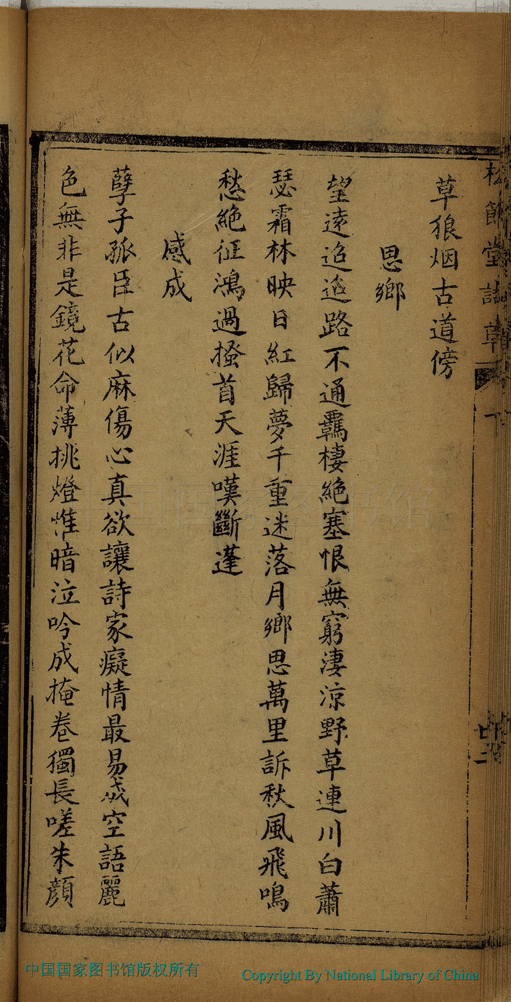 草狼烟古道傍
思鄉
望遠迢遥路不通羈棲絶塞恨無窮淒涼野草連川白蕭
瑟霜林映日紅歸夢千重迷落月鄉思萬里訴秋風飛鳴
愁絶征鴻過搔首天涯嘆斷蓬
感成
孽子孤臣古似麻傷心真欲讓詩家癡情最易成空語麗
色無非是鏡花命薄挑燈惟暗泣吟成掩卷獨長嗟朱顔
中国国家图书馆版权所有
Copyright By National Library of China